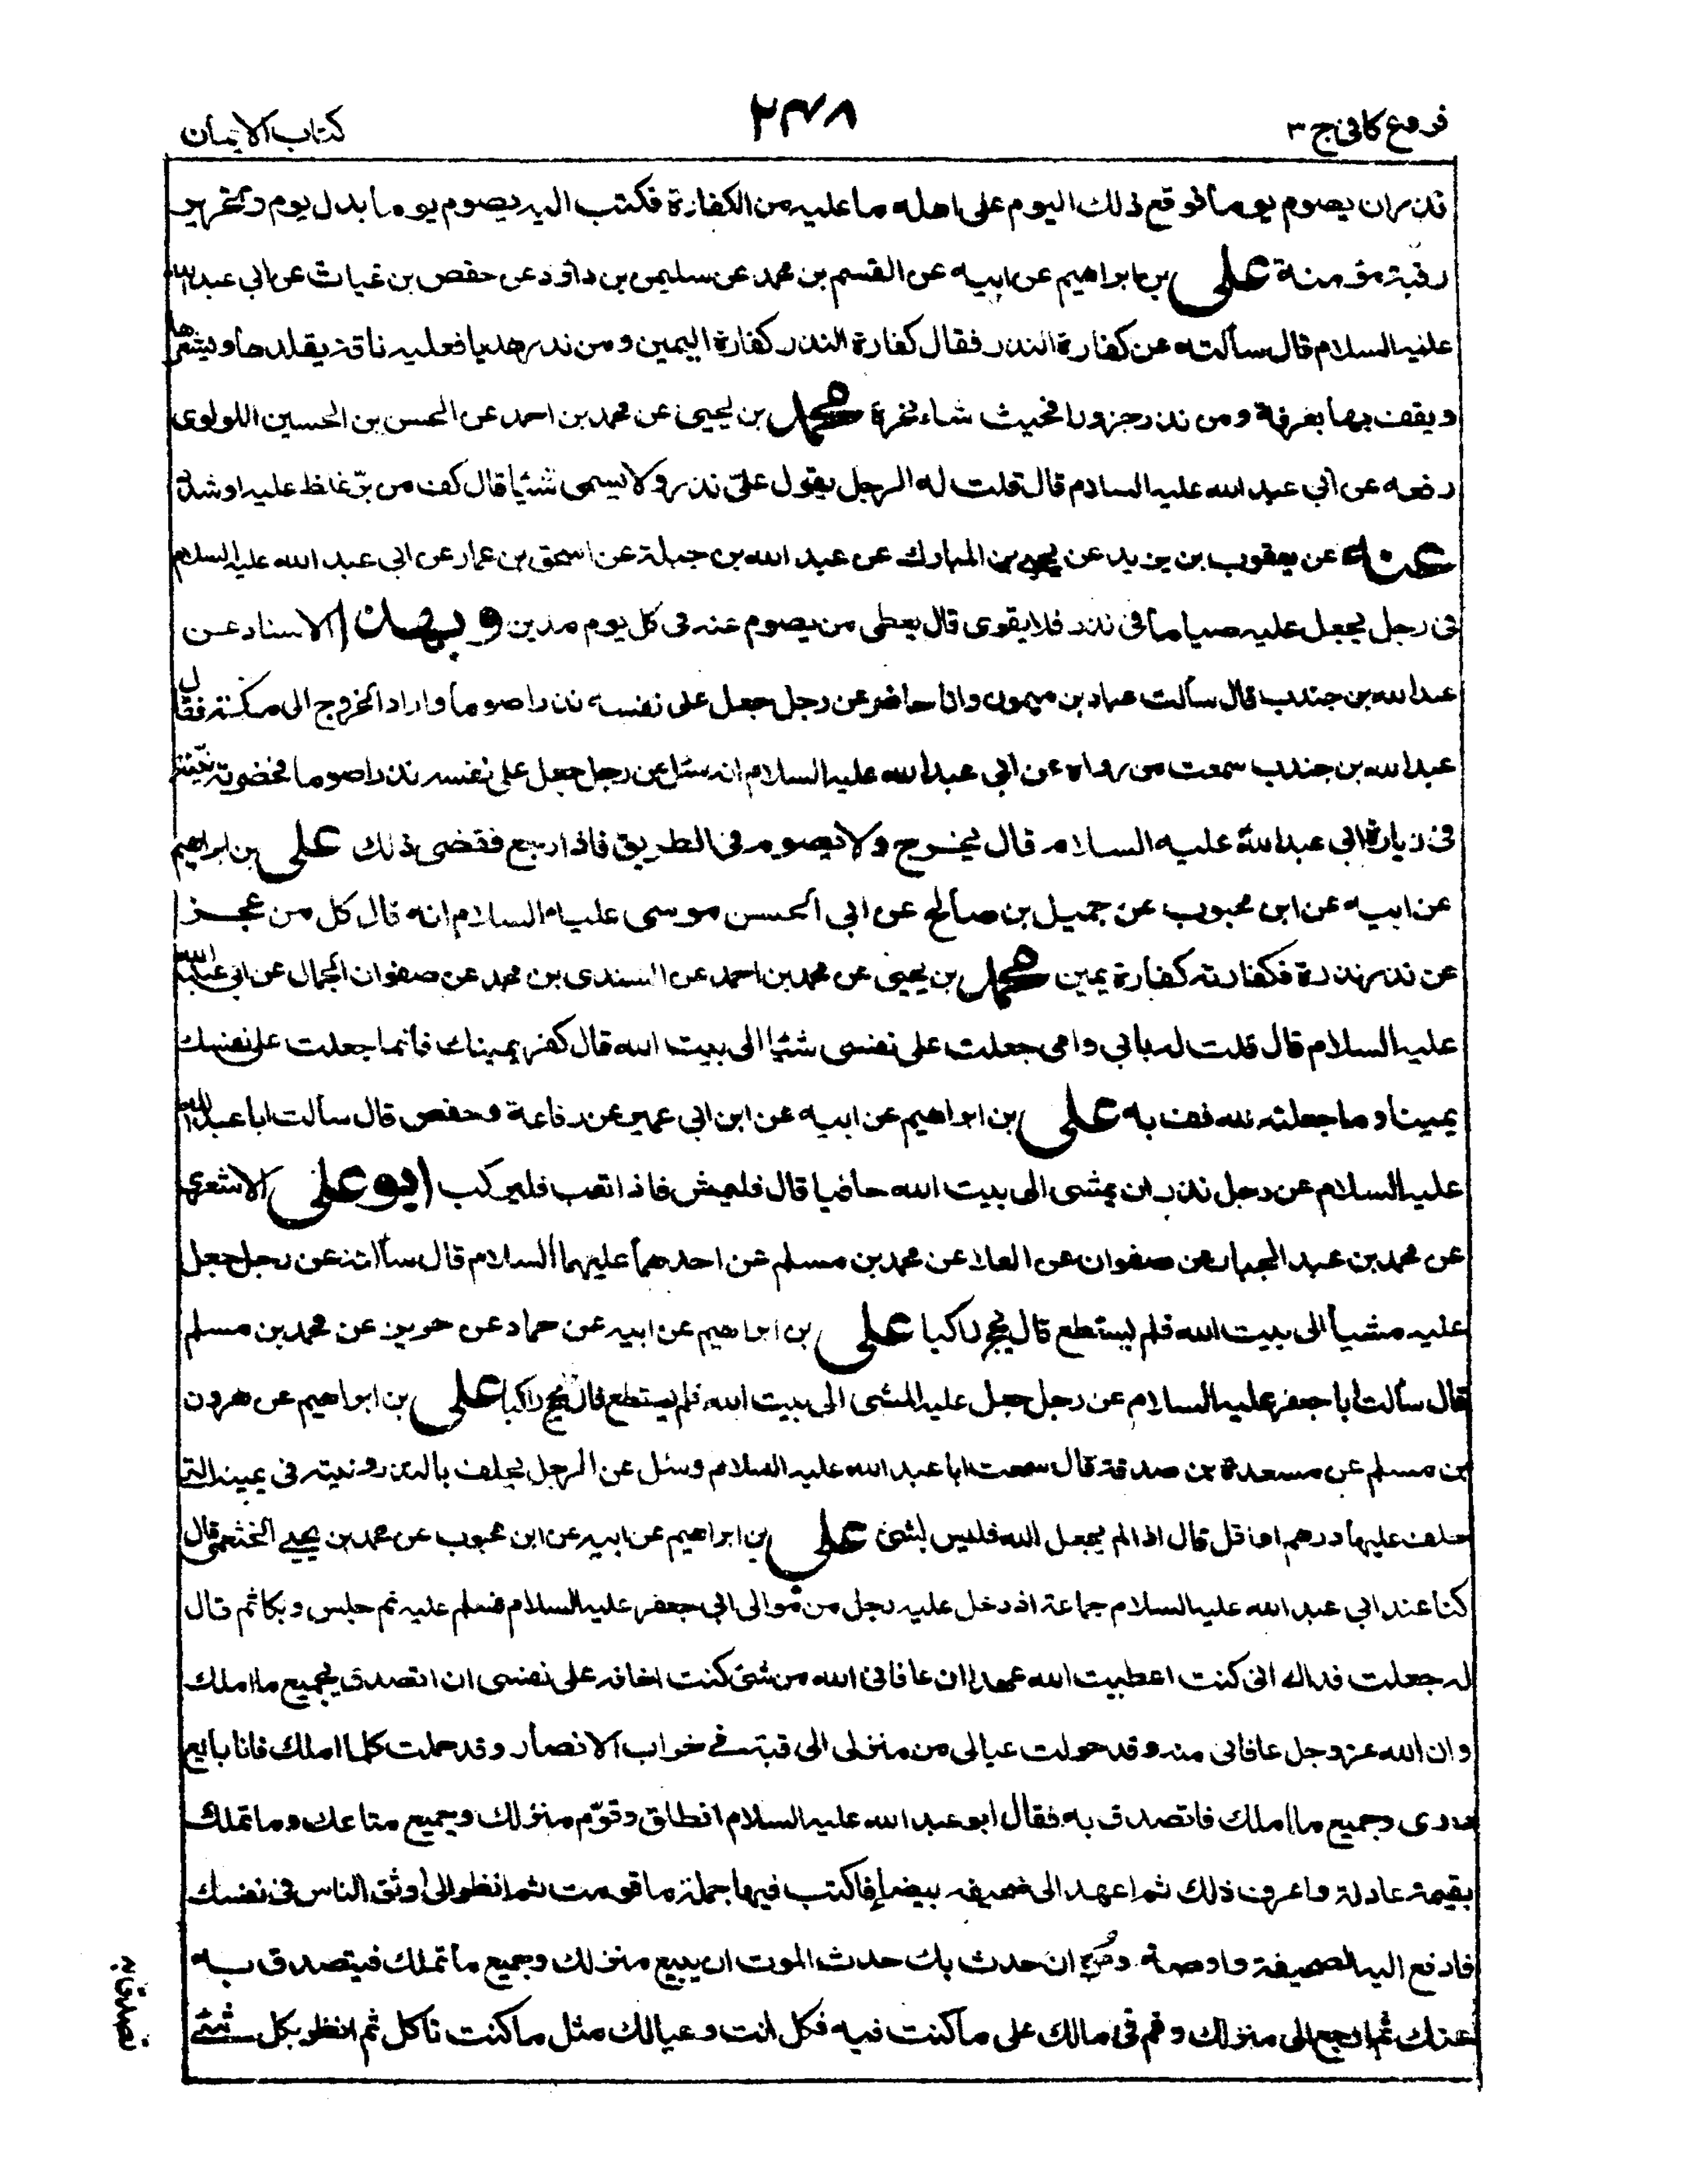 فروع كافى ج ٣
٢٤٨
كتاب الايمان
نذر ان يصوم يوما فوقع ذلك اليوم على اهله ما عليه من الكفارة فكتب اليه يصوم يوما بدل يوم وتحرير
رقبة مؤمنة على بن ابراهيم عن ابيه عن القسم بن محمد عن سليمن بن داود عن حفص بن غياث عن ابي عبد الله
عليه السلام قال سألته عن كفارة النذر فقال كفارة النذر كفارة اليمين ومن نذر هديا فعليه ناقة يقلدها ويشعرها
ويقف بها بعرفة ومن نذر جزورا فحيث شاء نحره محمد بن يحيى عن محمد بن احمد عن الحسن بن الحسين اللولوى
رفعه عن ابي عبد الله عليه السلام قال قلت له الرجل يقول علىّ نذر ولا يسمى شئيا قال كف من برّ غلظ عليه او شدد
عنه عن يعقوب بن يزيد عن يحيى بن المبارك عن عبد الله بن جبلة عن اسحق بن عمار عن ابي عبد الله عليه السلام
فى رجل يجعل عليه صياما فى نذر فلا يقوى قال يعطى من يصوم عنه فى كل يوم مدين وبهذا الاسناد عن
عبد الله بن جندب قال سألت عباد بن ميمون وانا حاضر عن رجل جعل على نفسه نذرا صوما واراد الخروج الى مكة فقال
عبد الله بن جندب سمعت من رواه عن ابي عبد الله عليه السلام انه سئل عن رجل جعل على نفسه نذرا صوما فحضرته نيّته
فى زيارة ابى عبد الله عليه السلام قال يخرج ولا يصوم فى الطريق فاذا رجع فقضى ذلك على بن ابراهيم
عن ابيه عن ابن محبوب عن جميل بن صالح عن ابي الحسن موسى عليه السلام انه قال كل من عجز
عن نذر نذره فكفارته كفارة يمين محمد بن يحيى عن محمد بن احمد عن السندى بن محمد عن صفوان الجمال عن ابى عبد الله
عليه السلام قال قلت له بابي وامى جعلت على نفسى شئيا الى بيت الله قال كفر يمينك فانما جعلت على نفسك
يمينا وما جعلته لله فف به على بن ابراهيم عن ابيه عن ابن ابي عمير عن رفاعة وحفص قال سألت ابا عبد الله
عليه السلام عن رجل نذر ان يمشى الى بيت الله حافيا قال فليمش فاذا تعب فليركب ابو على الاشعرى
عن محمد بن عبد الجبار عن صفوان عن العلا عن محمد بن مسلم عن احدهما عليهما السلام قال سألته عن رجل جعل
عليه مشيا الى بيت الله فلم يستطع قال يحج راكبا على بن ابراهيم عن ابيه عن حماد عن حريز عن محمد بن مسلم
قال سألت ابا جعفر عليه السلام عن رجل جعل عليه المشى الى بيت الله فلم يستطع قال يحج راكبا على بن ابراهيم عن هرون
بن مسلم عن مسعدة بن صدقة قال سمعت ابا عبد الله عليه السلام وسئل عن الرجل يحلف بالنذر ونيته فى يمينه التى
حلف عليها درهم او اقل قال اذا لم يجعل لله فليس بشئ على بن ابراهيم عن ابيه عن ابن محبوب عن محمد بن يحيى الخثعمى قال
كنا عند ابي عبد الله عليه السلام جماعة اذ دخل عليه رجل من موالى ابي جعفر عليه السلام فسلم عليه ثم جلس وبكا ثم قال
له جعلت فداك انى كنت اعطيت الله عهدا ان عافانى الله من شئ كنت اخافه على نفسى ان اتصدق بجميع ما املك
وان الله عز وجل عافانى منه وقد حولت عيالى من منزلى الى قبة فى خراب الانصار وقد حملت كلما املك فانا بائع
دارى وجميع ما املك فاتصدق به فقال ابو عبد الله عليه السلام انطلق وقوّم منزلك وجميع متاعك وما تملك
بقيمة عادلة واعرف ذلك ثم اعهد الى صحيفة بيضاء فاكتب فيها جملة ما قومت ثم انظر الى اوثق الناس فى نفسك
فادفع اليه الصحيفة واوصه ومره ان حدث بك حدث الموت ان يبيع منزلك وجميع ما تملك فيتصدق به
عنك ثم ارجع الى منزلك وقم فى مالك على ما كنت فيه فكل انت وعيالك مثل ما كنت تاكل ثم انظر بكل شئ